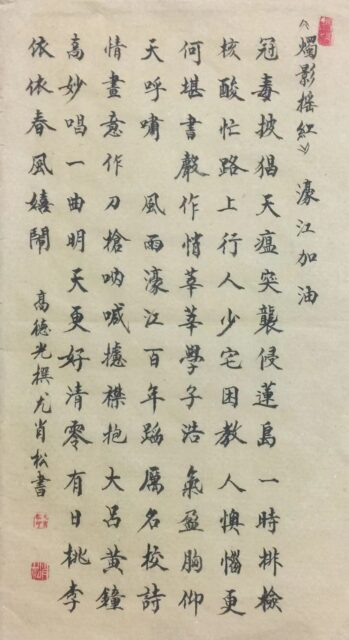 《燭影搖紅》 濠江加油
冠毒披猖天瘟突襲侵蓮島一時排檢
核酸忙路上行人少宅困教人懊惱更
何堪書聲作悄莘莘學子浩氣盈胸仰
天呼嘯 風雨濠江百年蹈厲名校詩
情畫意作刀槍吶喊攄襟抱大呂黃鐘
高妙唱一曲明天更好清零有日桃李
依依春風嬉鬧 高德光撰尤肖松書